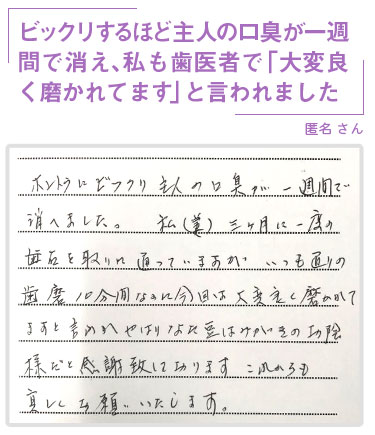 ビックリするほど主人の口臭が一週
間で消え、私も歯医者で「大変良
く磨かれてます」と言われました
匿名 さん
ホントウにビックリ 主人の口臭が一週間で
消へました。 私(妻) 三ヶ月に一度の
歯石を取りに通っていますが いつも通りの
歯磨10分間なのに今回は大変良く磨かれて
ますと言われやはりなた豆はみがきの御陰
様だと感謝致して居ります これからも
宜しくお願いいたします。